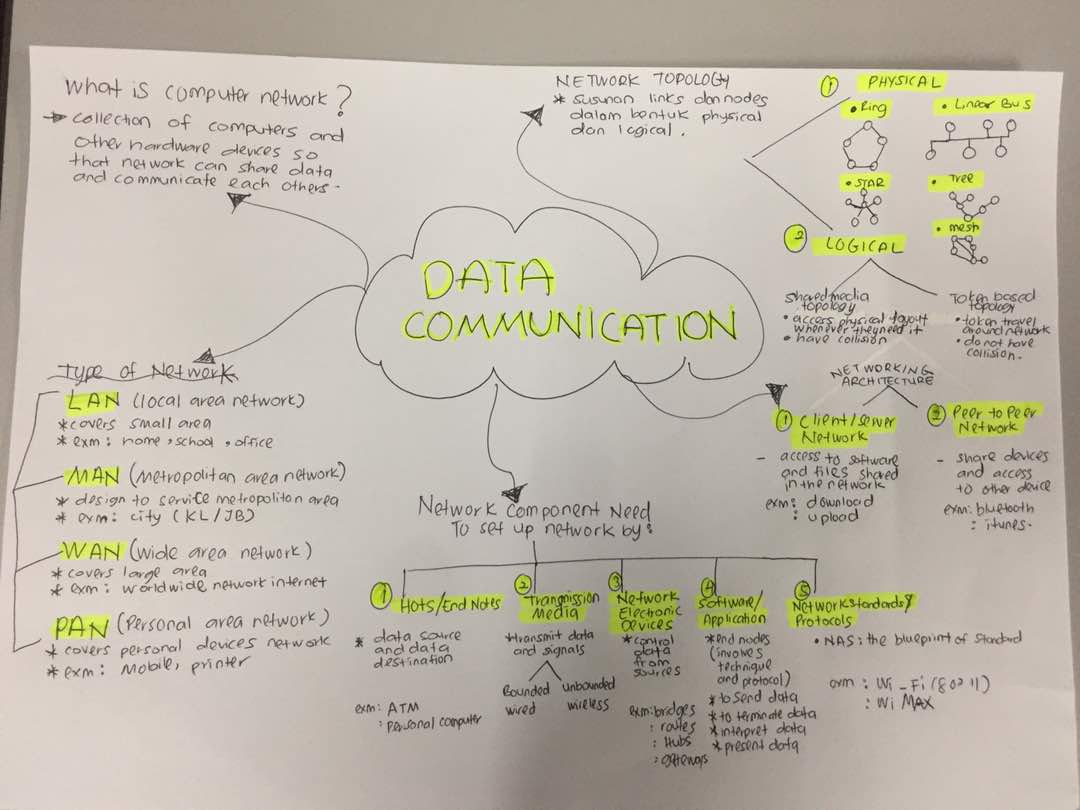 What is computer network?
collection of computers and
other hardware devices so
that network can share data
and communicate each others.
NETWORK TOPOLOGY
* susunan links dan nodes
dalam bentuk physical
dan logical.
1 PHYSICAL
• Ring
• Linear Bus
• STAR
• Tree
• mesh
2 LOGICAL
shared media
topology
• access physical layout
whenever they need it
• have collision
Token based
topology
• token travel
around network
• do not have
collision.
DATA
COMMUNICATION
Type of Network
LAN (local area network)
* covers small area
* exm: home, school, office
MAN (Metropolitan area network)
* design to service metropolitan area
* exm: city (KL/JB)
WAN (wide area network)
* covers large area
* exm: worldwide network internet
PAN (Personal area network)
* covers personal devices network
* exm: Mobile, printer
NETWORKING
ARCHITECTURE
1 Client/server
Network
- access to software
and files shared
in the network
exm: download
: upload
2 Peer to Peer
Network
- share devices
and access
to other device
exm: bluetooth
: itunes.
Network Component Need
To set up network by:
1 Hots/End Notes
* data source
and data
destination
exm: ATM
: personal computer
2 Transmission
Media
*transmit data
and signals
Bounded
wired
unbounded
wireless
3 Network
Electronic
Devices
*control
data
from
sources
exm: bridges
: routes
: Hubs
: gateways
4 Software/
Application
*end nodes
(involves
technique
and protocol)
*to send data
*to terminate data
*interpret data
*present data
5 Network standards &
Protocols
• NAS: the blueprint of standard
exm: Wi-Fi (80211)
: Wi MAX